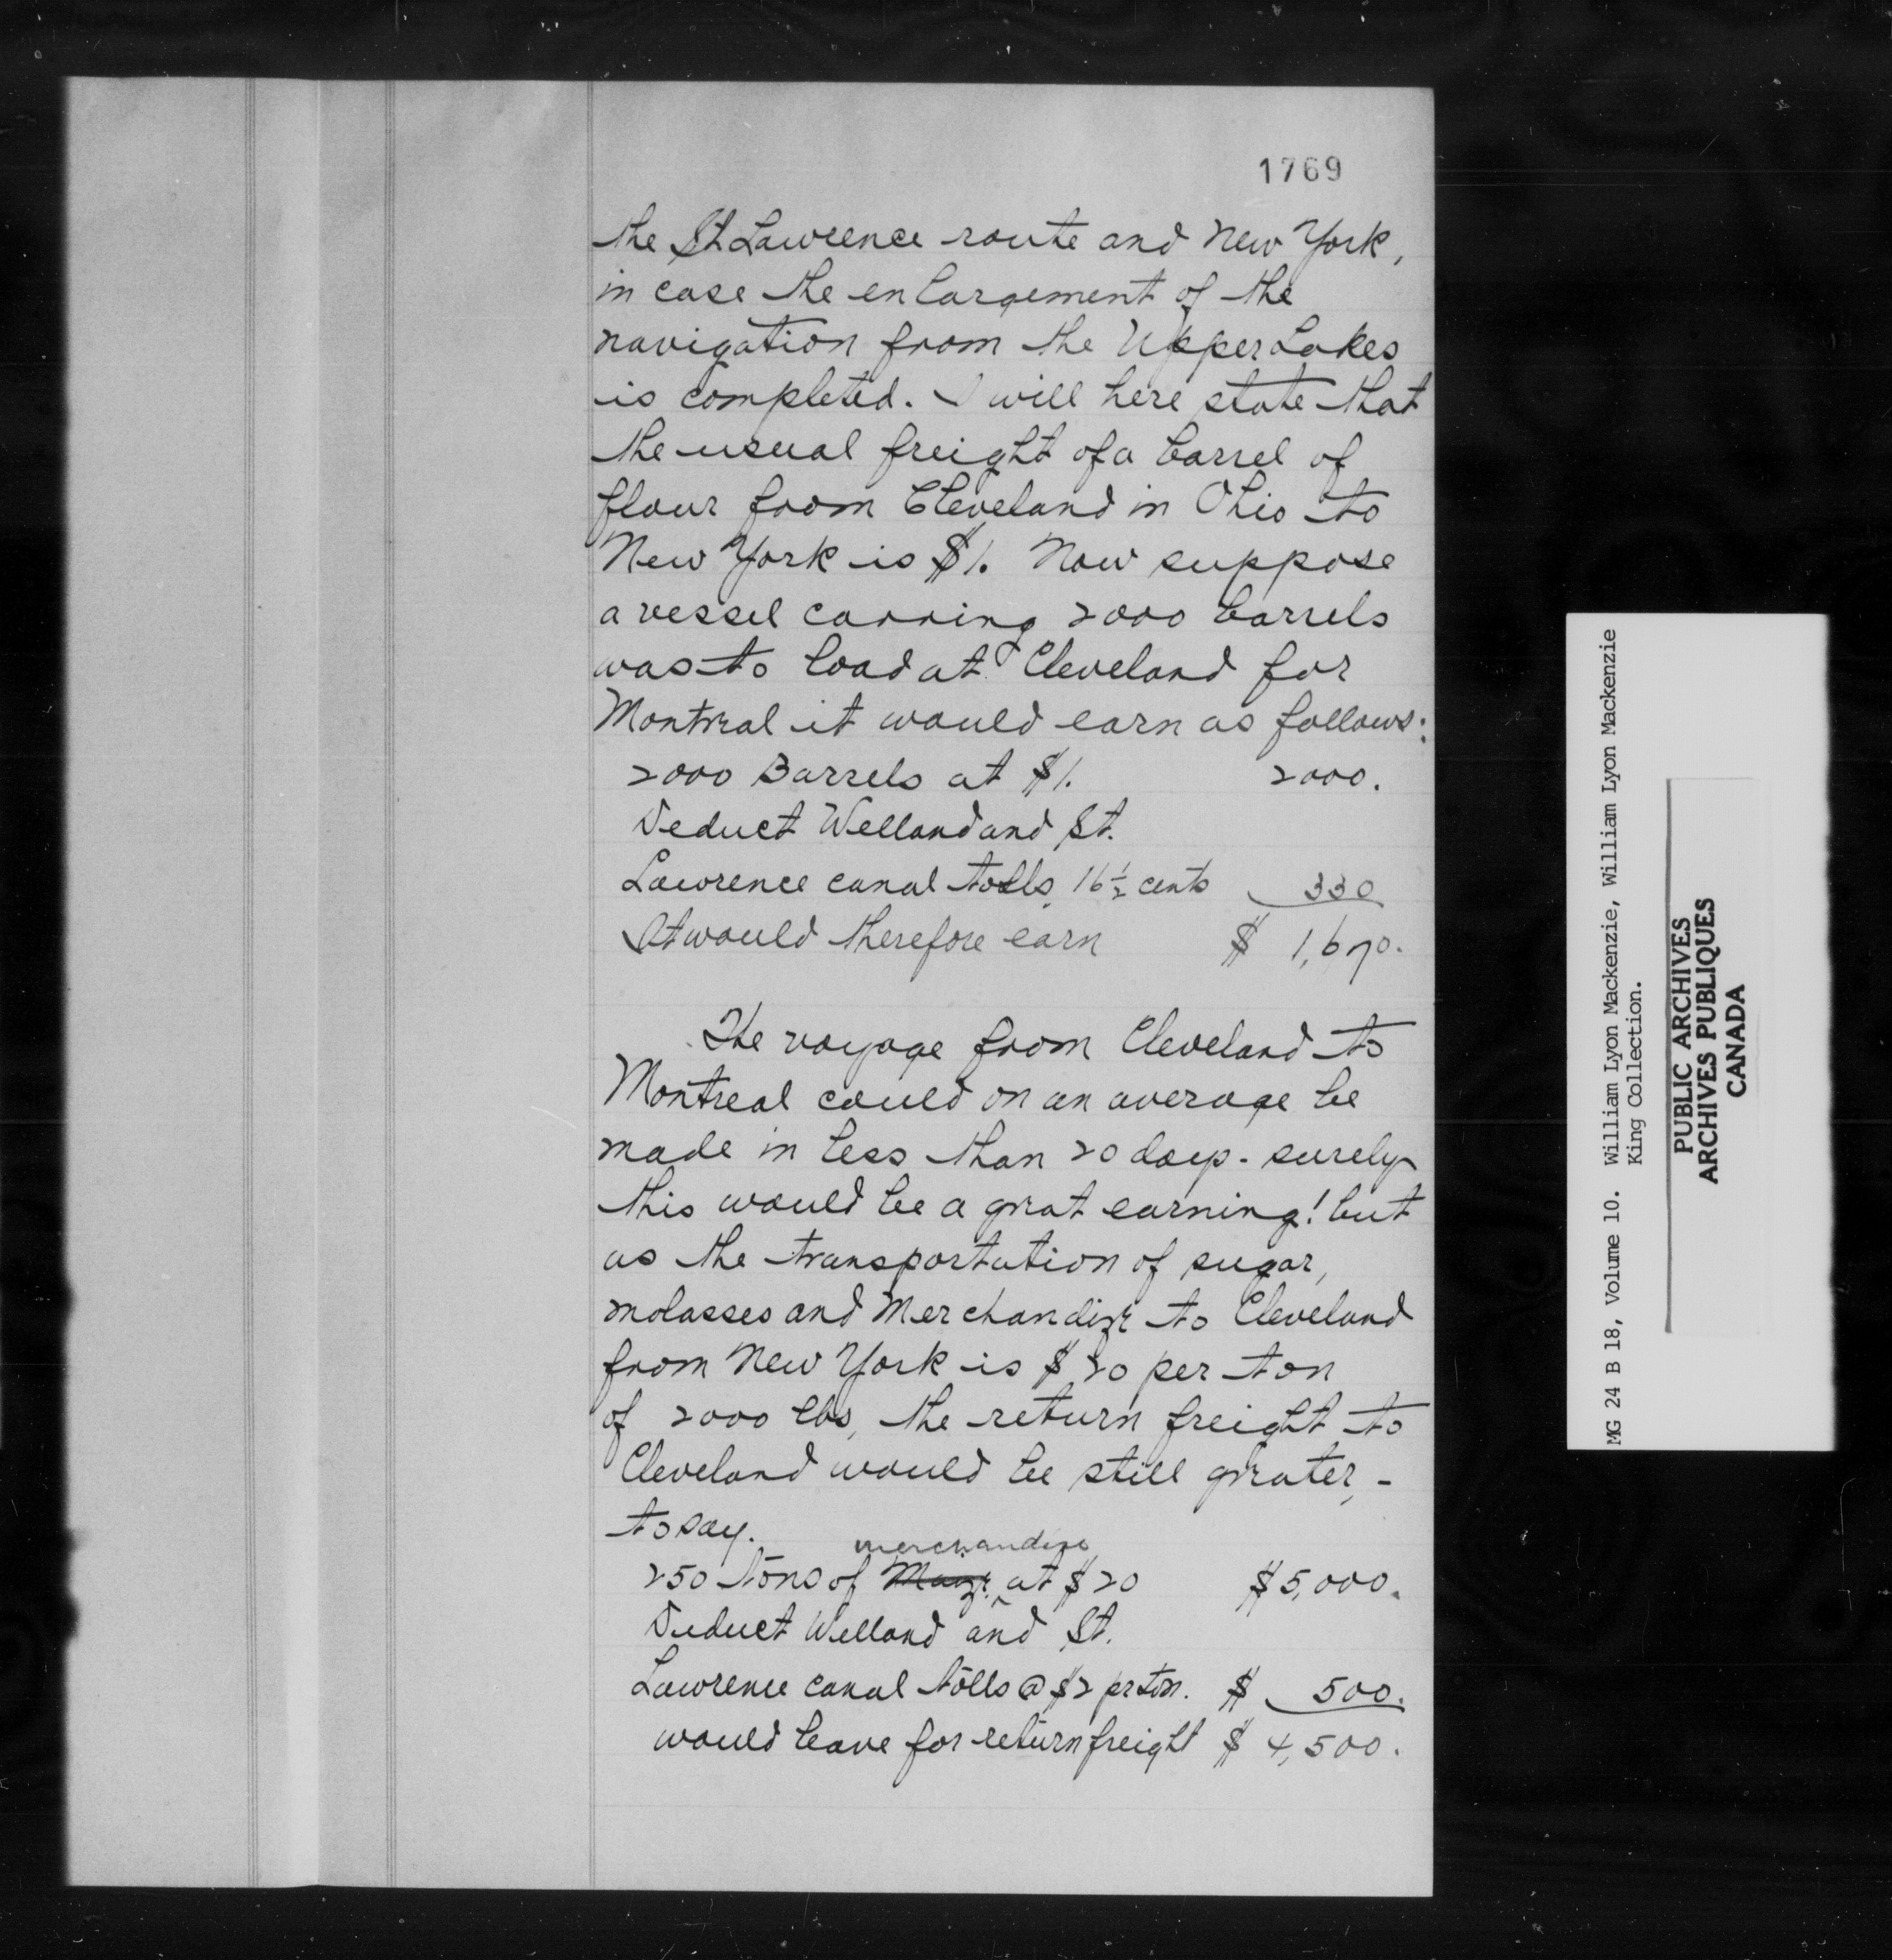 1769
the St Lawrence route and New York,
in case the enlargement of the
navigation from the Upper Lakes
is completed. I will here state that
the usual freight of a barrel of
flour from Cleveland in Ohio to
New York is $1. Now suppose
a vessel carring 2000 barrels
was to load at Cleveland for
Montreal it would earn as follows:
2000 Barrels at $1. 2000.
Deduct Welland and St.
Lawrence canal tolls, 16½ cents 330
It would therefore earn $ 1,670.
The voyage from Cleveland to
Montreal could on an average be
made in less than 20 days - surely
this would be a great earning! but
as the transportation of sugar,
molasses and Merchandize to Cleveland
from New York is $20 per ton
of 2000 lbs, the return freight to
Cleveland would be still greater, -
to say.
merchandize
250 tons of at $20 $5,000.
Deduct Welland and St.
Lawrence canal tolls @ $2 pr ton. $ 500.
would leave for return freight $ 4,500.
MG 24 B 18, Volume 10. William Lyon Mackenzie, William Lyon Mackenzie
King Collection.
PUBLIC ARCHIVES
ARCHIVES PUBLIQUES
CANADA